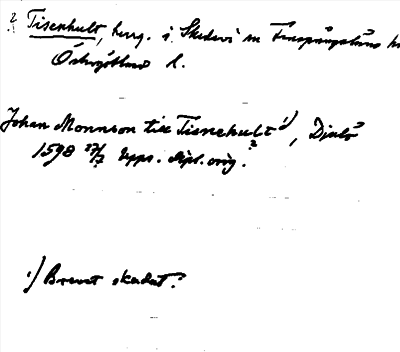 ? Tisenhult, herrg. i Skedevi sn Finspångaläns h
Östergötland l.
Johan Monnson till Tisnehult 1), Djulö
1598 27/7 Upps. dipl. orig. ?
1) Brevet skadat.